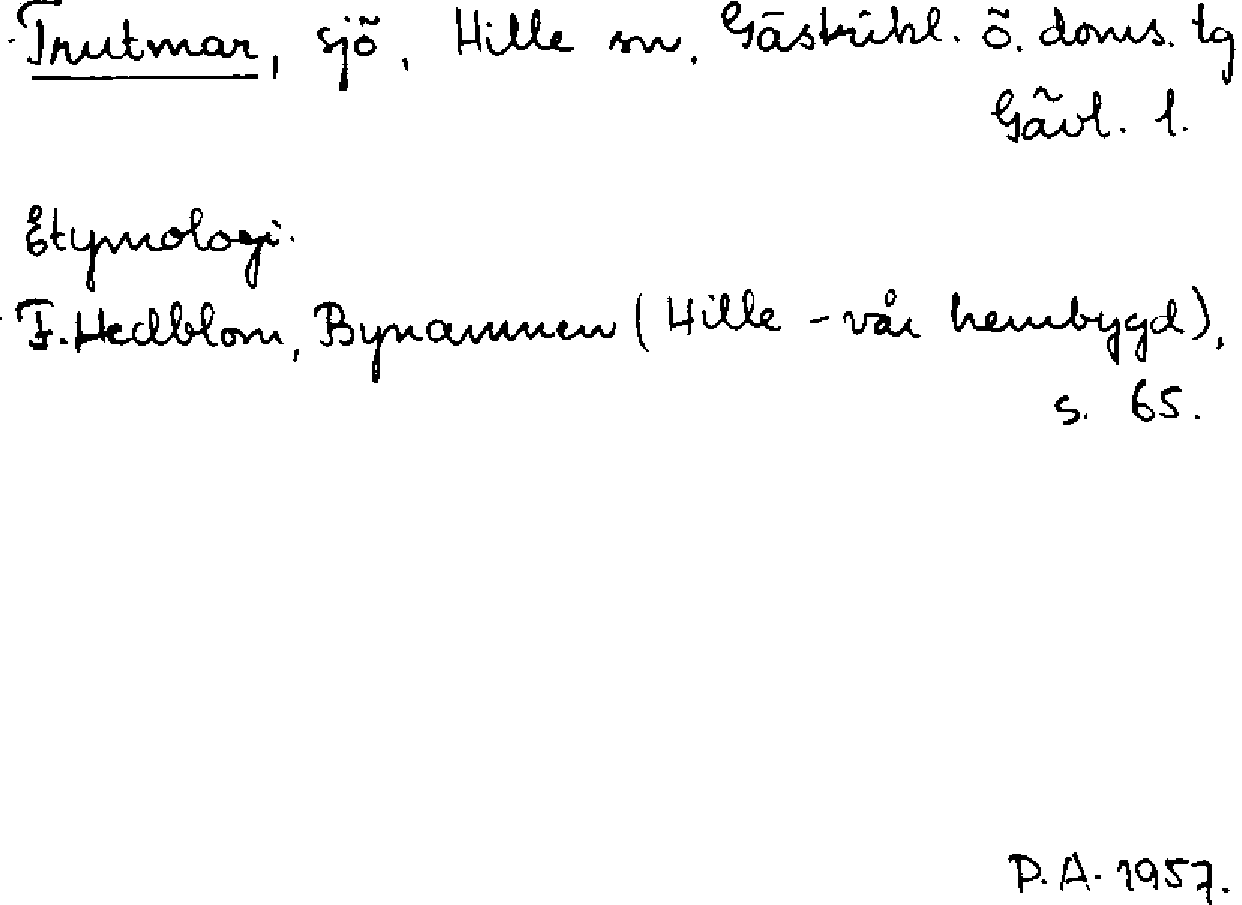 Trutmar, sjö, Hille sn. Gästrikl. ö. doms. tg
Gävl. l.
Etymologi.
F. Hedblom, Bynamnen (Hille - vår hembygd),
s. 65.
P.A. 1957.